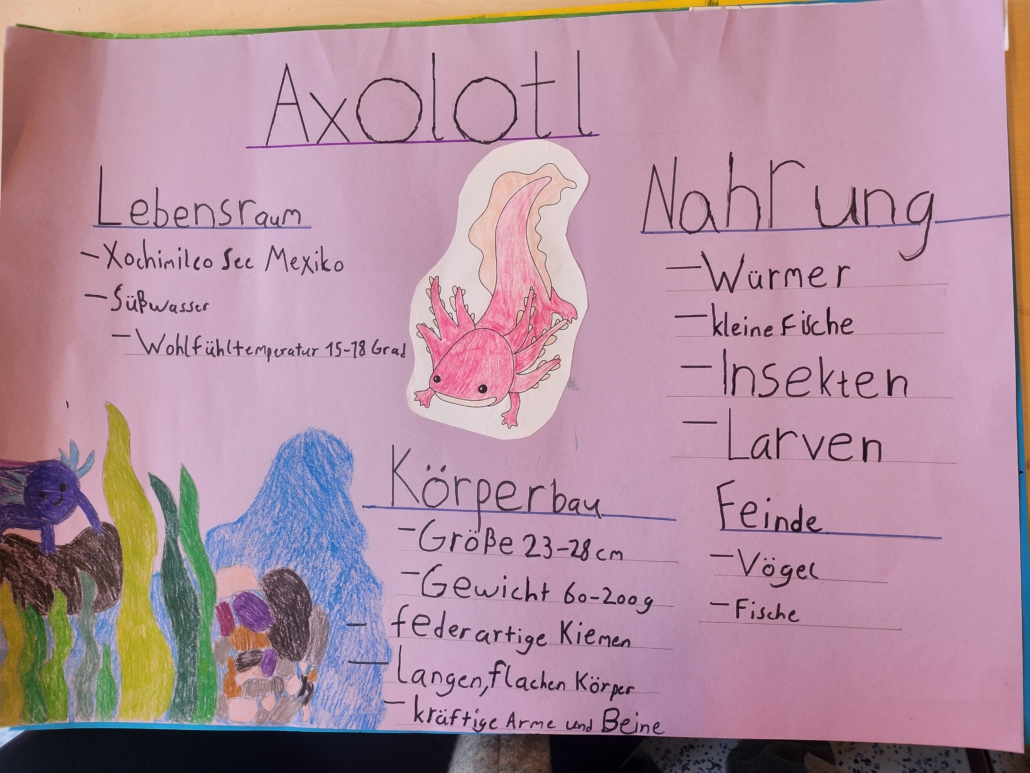 Axolotl
Lebensraum
- Xochimilco See Mexiko
- Süßwasser
- Wohlfühltemperatur 15-18 Grad
Nahrung
- Würmer
- kleine Fische
- Insekten
- Larven
Körperbau
- Größe 23-28 cm
- Gewicht 60-200g
- federartige Kiemen
- Langen, flachen Körper
- kräftige Arme und Beine
Feinde
- Vögel
- Fische